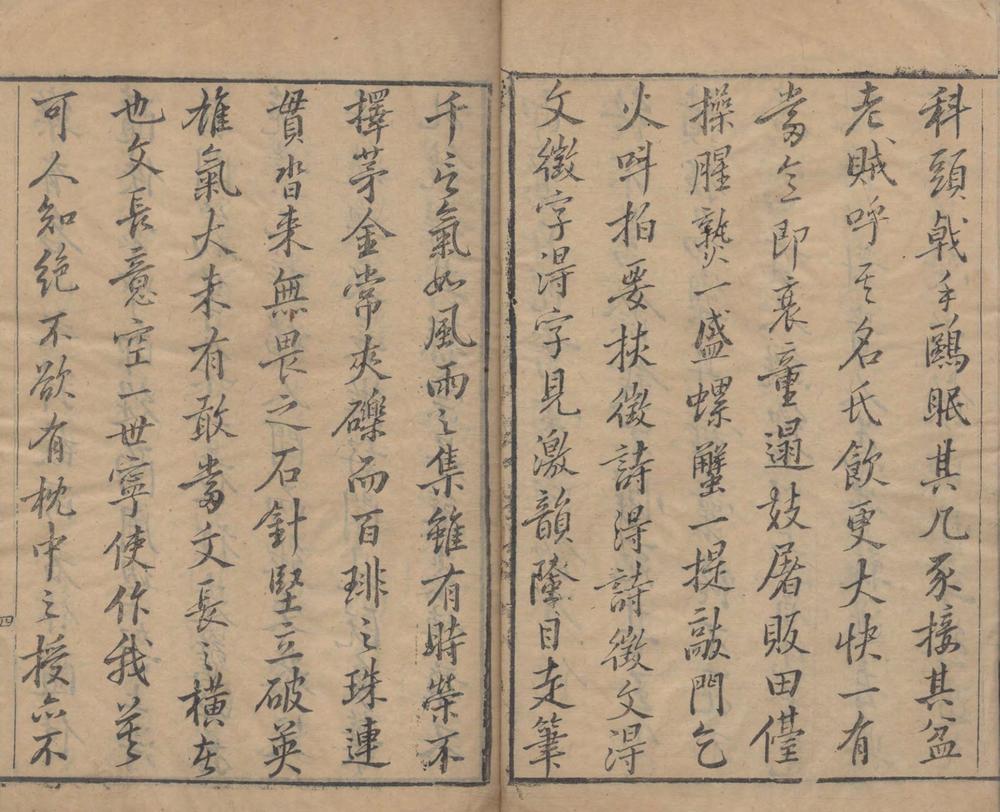 科頭戟手鷗眠其几豕接其盆
老賊呼其名氏飲更大快一有
當意即衰童遢妓屠販田儓
操腥熟一盛螺蟹一提敲門乞
火叫拍要挾徵詩得詩徵文得
文徵字得字見激韻險目走筆
千言氣如風雨之集雖有時榮不
擇茅金常夾礫而百琲之珠連
貫沓來無畏之石針堅立破英
雄氣大未有敢當文長之橫者
也文長意空一世寧使作我莫
可人知絶不欲有枕中之授亦不
四